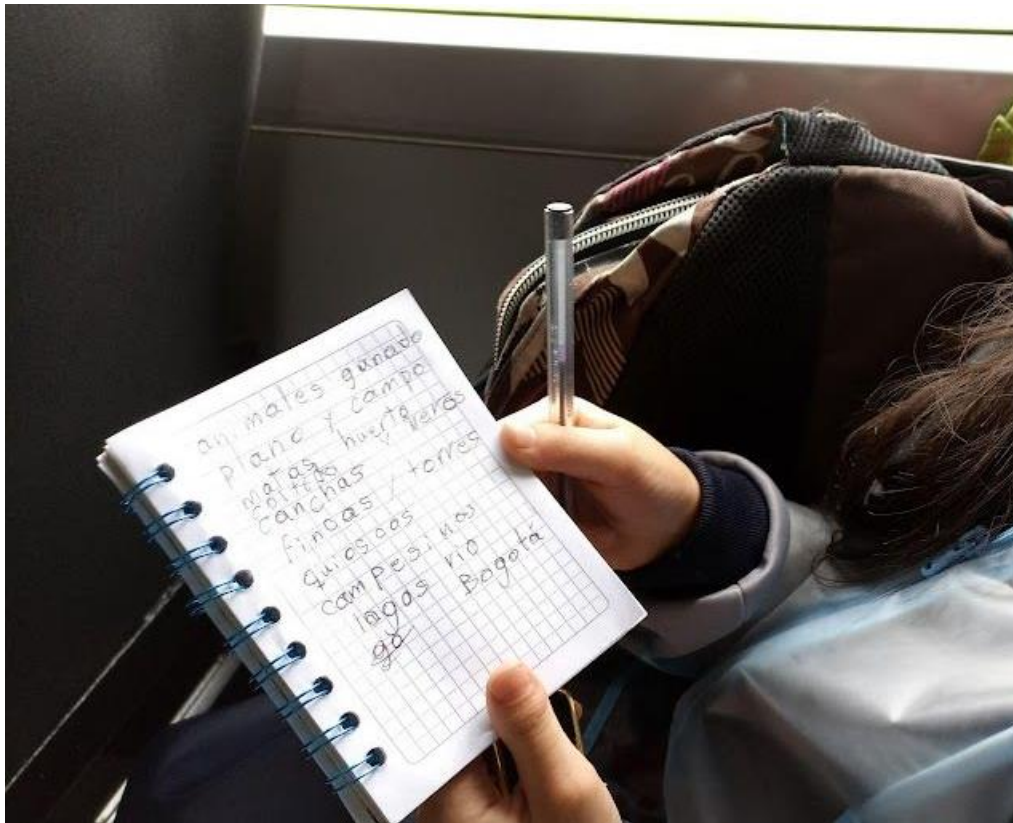 animales ganado
plano y campo
matas huerta
colinas y veros
canchas
fincas / torres
quioscos
campesinos
lagos rio
Bogotá